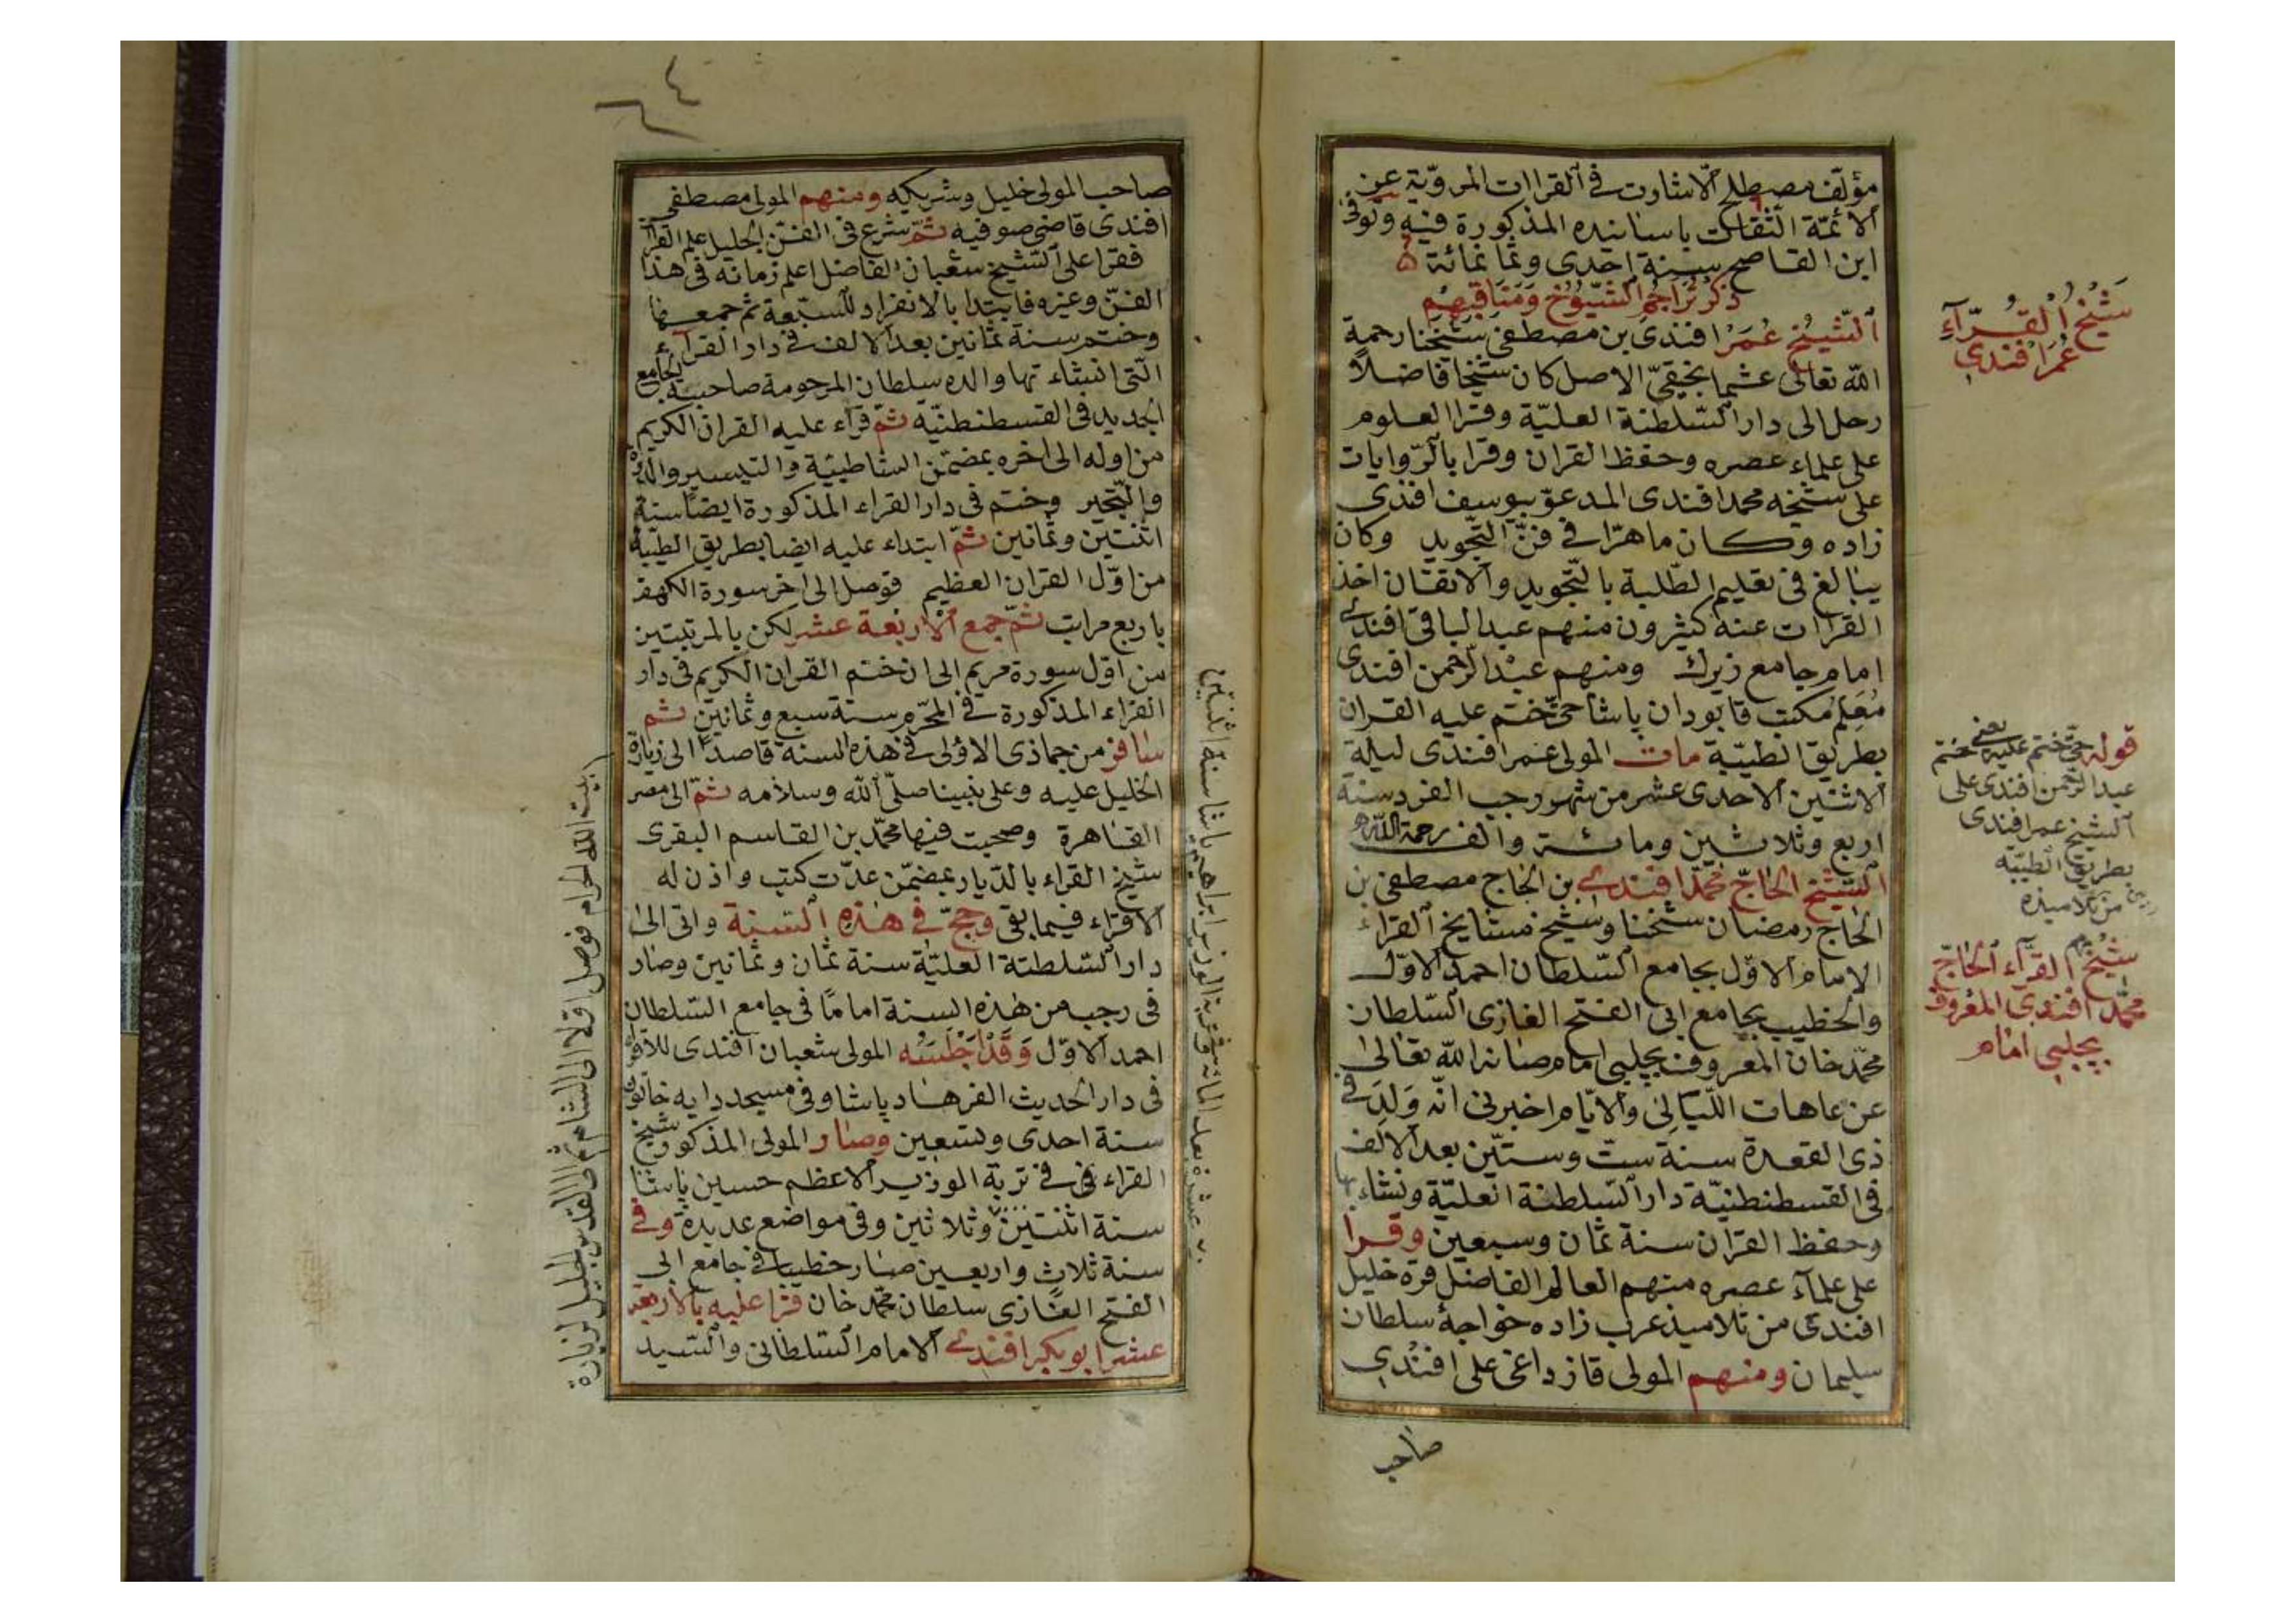 مؤلف مصطلح الاشارت في القراات المروية عن
الائمة الثقات باسانيده المذكورة فيه وتوفى
ابن القاصح سنة احدى وثمانمائة
ذكر تراجم الشيوخ ومناقبهم
الشيخ عمر افندى بن مصطفى شيخنا رحمة
الله تعالى عثمانجقى الاصل كان شيخا فاضلا
رحل الى دار السلطنة العلية وقرا العلوم
على علماء عصره وحفظ القران وقرا بالروايات
على شيخه محمد افندى المدعو بيوسف افندى
زاده وكان ماهرا في فن التجويد وكان
يبالغ في تعليم الطلبة بالتجويد والاتقان اخذ
القراات عنه كثيرون منهم عبد الباقى افندى
امام جامع زيرك ومنهم عبد الرحمن افندى
معلم مكتب قابودان پاشا حتى ختم عليه القران
بطريق الطيبة مات المولى عمر افندى ليلة
الاثنين الاحدى عشر من شهر رجب الفرد سنة
اربع وثلاثين ومائة والف رحمة الله
الشيخ الحاج محمد افندى بن الحاج مصطفى بن
الحاج رمضان شيخنا وشيخ مشايخ القراء
الامام الاول بجامع السلطان احمد الاول
والخطيب بجامع ابى الفتح الغازى السلطان
محمد خان المعروف بچلبى امام صانه الله تعالى
عن عاهات الليالى والايام اخبرنى انه ولد في
ذى القعدة سنة ست وستين بعد الالف
في القسطنطنية دار السلطنة العلية ونشاء بها
وحفظ القران سنة ثمان وسبعين وقرا
على علماء عصره منهم العالم الفاضل قره خليل
افندى من تلاميذ عرب زاده خواجه سلطان
سليمان ومنهم المولى قاز داغى على افندى
صاحب
شيخ القراء
عمر افندى
قوله حتى ختم عليه يعنى ختم
عبد الرحمن افندى على
الشيخ عمر افندى
بطريق الطيبة
من تلاميذه
شيخ القراء الحاج
محمد افندى المعروف
بچلبى امام
صاحب المولى خليل وشريكه ومنهم المولى مصطفى
افندى قاضى صوفيه ثم شرع في الفن الجليل علم القراء
فقرا على الشيخ شعبان الفاضل اعلم زمانه في هذا
الفن وغيره فابتدا بالانفراد للسبعة ثم جمعها
وختم سنة ثمانين بعد الالف في دار القراء
التى انشاء تها والده سلطان المرحومة صاحبة الجامع
الجديد في القسطنطنية ثم قراء عليه القران الكريم
من اوله الى اخره بمضمن الشاطبية والتيسير والدرة
والتحبير وختم في دار القراء المذكورة ايضا سنة
اثنتين وثمانين ثم ابتداء عليه ايضا بطريق الطيبة
من اول القران العظيم فوصل الى اخر سورة الكهف
باربع مرات ثم جمع الاربعة عشر لكن بالمرتبتين
من اول سورة مريم الى ان ختم القران الكريم في دار
القراء المذكورة في المحرم سنة سبع وثمانين ثم
سافر من جماذى الاولى في هذه السنة قاصدا الى زيارة
الخليل عليه وعلى نبينا صلى الله وسلامه ثم الى مصر
القاهرة وصحبت فيها محمد بن القاسم البقرى
شيخ القراء بالديار بمضمن عدت كتب واذن له
الاقراء فيما بقى وحج في هذه السنة واتى الى
دار السلطنة العلية سنة ثمان وثمانين وصار
في رجب من هذه السنة اماما في جامع السلطان
احمد الاول وقد اجلسه المولى شعبان افندى للاقراء
في دار الحديث الفرهاد پاشا وفي مسجد دايه خاتون
سنة احدى وتسعين وصار المولى المذكور شيخ
القراء في تربة الوزير الاعظم حسين پاشا
سنة اثنتين وثلاثين وفي مواضع عديدة وفي
سنة ثلاث واربعين صار خطيبا في جامع ابى
الفتح الغازى سلطان محمد خان قرا عليه بالاربعة
عشر ابو بكر افندى الامام السلطانى والسيد
بيت الله الحرام فوصل اولا الى الشام ثم الى القدس الجليل لزيارة